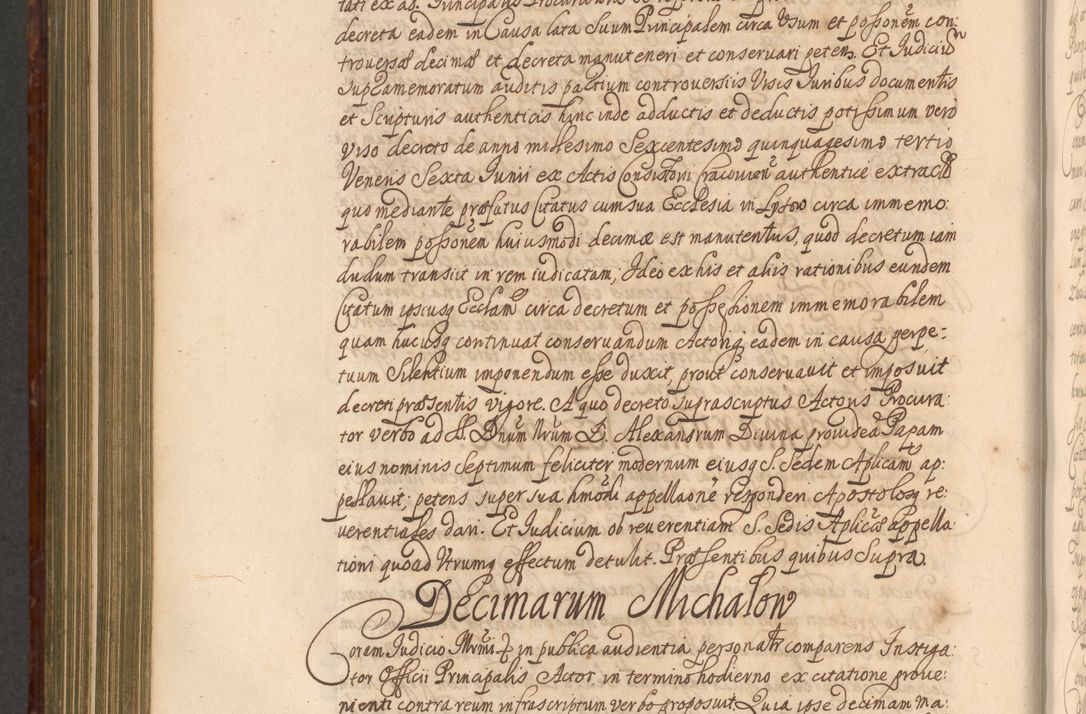 decreta eadem in Causa lata Suum Principalem circa Usum et possonem con:
troversæ decimæ et decreta manuteneri et conservari petens. Et Iudiciū
supramemoratum auditis partium controversiis Visis Iuribus documentis
et Scripturis authenticis hinc inde adductis et deductis potissimum vero
viso decreto de anno millesimo Sexcentesimo quinquagesimo tertio
Veneris Sexta Iunii ex Actis Consistorii Cracovien̄ authentice extracto
quo mediante præfatus Citatus cum sua Ecclesia in Lysow circa immemo:
rabilem possonem huiusmodi decimæ est manutentus, quod decretum iam
dudum transiit in rem iudicatam, Ideo ex his et aliis rationibus eundem
Citatum ipsiusq Ecclam circa decretum et possessionem immemorabilem
quam hucusq continuat conservandum Actoriq eadem in causa perpe:
tuum Silentium imponendum esse duxit, prout conservavit et imposuit
decreti præsentis vigore. A quo decreto suprascriptus Actoris Procura:
tor verbo ad SS. Dnūm Nrūm D. Alexandrum Divina providea Papam
eius nominis Septimum feliciter modernum eiusq S. Sedem Aplicam ap:
pellavit, petens super sua hmōdi appellaone responderi Apostolosq re:
verentiales dari. Et Iudicium ob reverentiam S. Sedis Aplicæ appella:
tioni quoad Utrumq effectum detulit. Præsentibus quibus Supra.
Decimarum Michałow
Coram Iudicio Illrmi in publica audientia personalr comparens Instiga:
tor Officii Principalis Actor, in termino hodierno ex citatione prove:
nienti contra reum infrascriptum verbo proposuit, Quia ipse decimam ma: